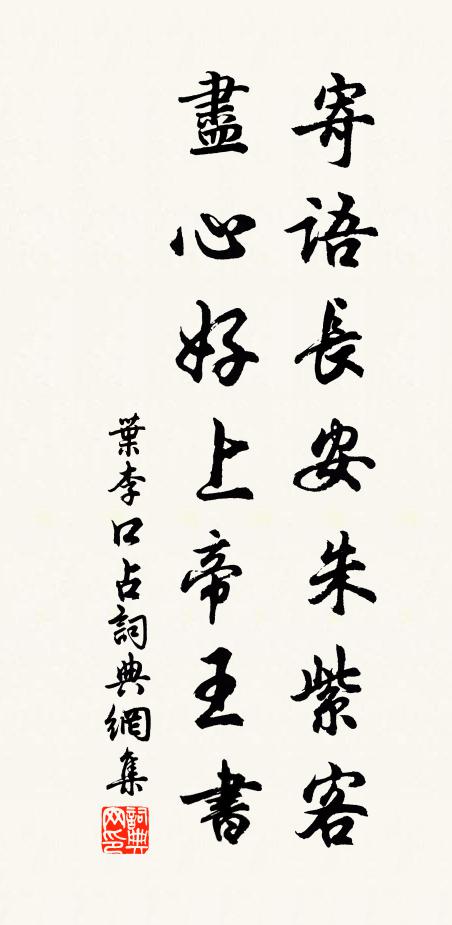 寄語長安朱紫客
盡心好上帝王書
葉李口占詞典網集
詞典网印